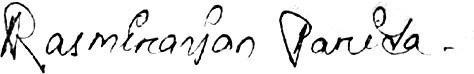 Rasmiranjan Parida.